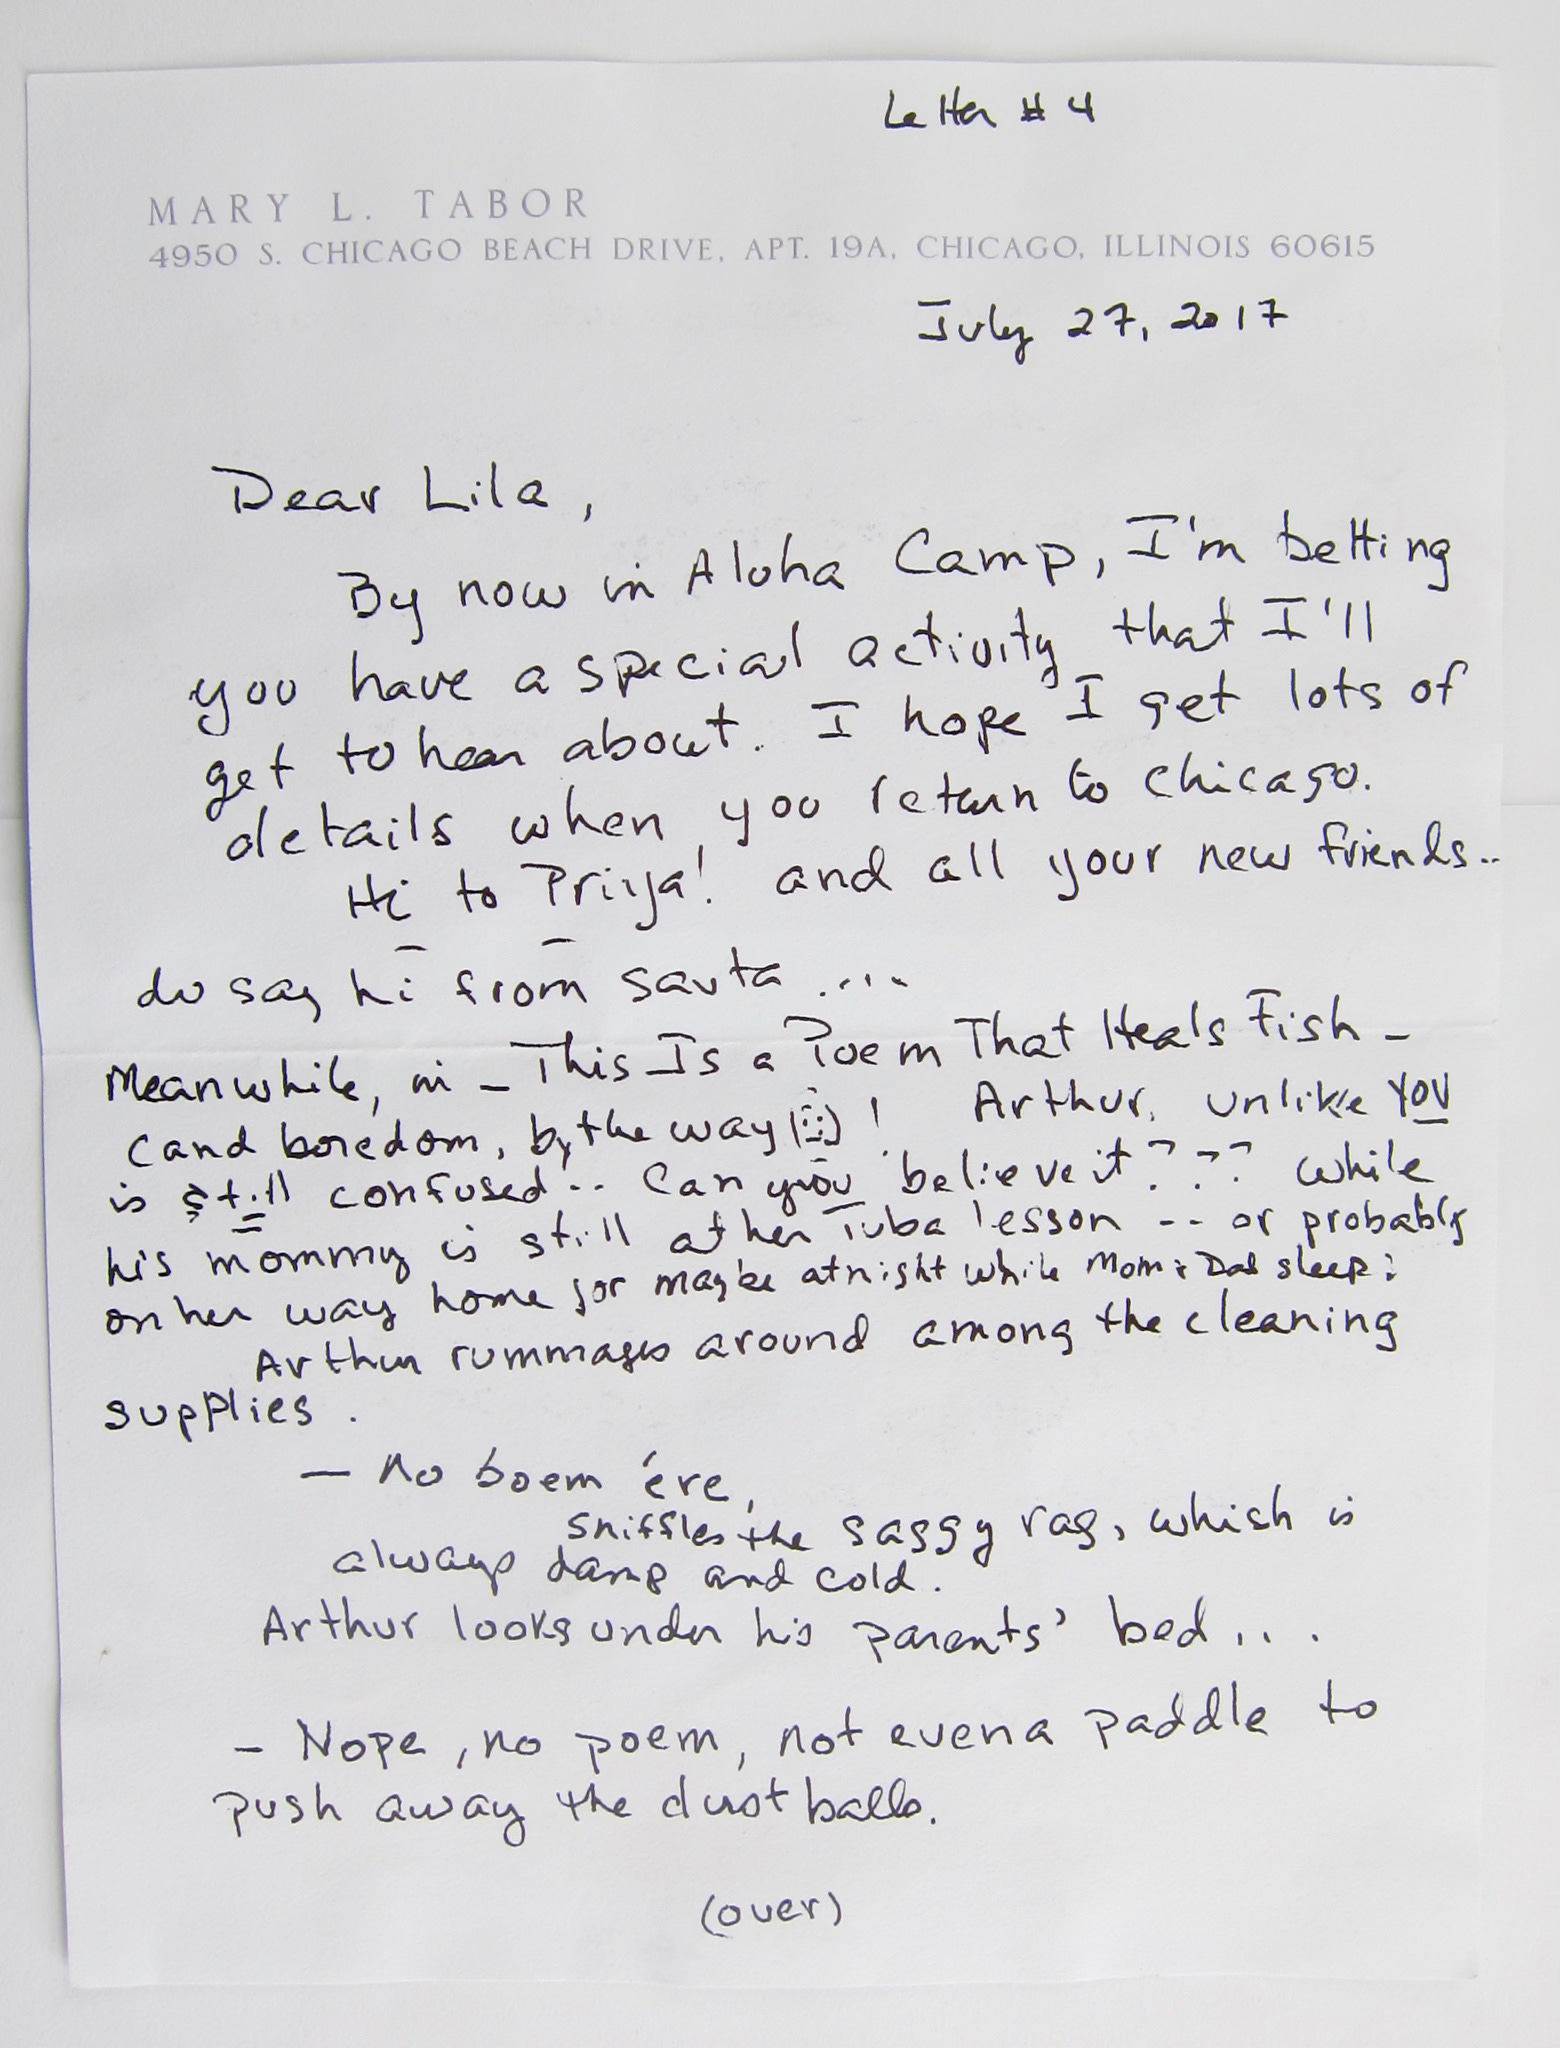 Letter # 4
MARY L. TABOR
4950 S. CHICAGO BEACH DRIVE, APT. 19A, CHICAGO, ILLINOIS 60615
July 27, 2017
Dear Lila,
By now in Aloha Camp, I'm betting
you have a special activity that I'll
get to hear about. I hope I get lots of
details when you return to Chicago.
Hi to Priya! and all your new friends..
do say hi from Savta ....
Meanwhile, in - This Is a Poem That Heals Fish -
(and boredom, by the way (☺)! Arthur, unlike YOU
is still confused... Can you believe it??? While
his mommy is still at her Tuba lesson -- or probably
on her way home for maybe at night while Mom & Dad sleep:
Arthur rummages around among the cleaning
supplies.
— No boem 'ere,
sniffles the saggy rag, whish is
always damp and cold.
Arthur looks under his parents' bed...
- Nope, no poem, not even a paddle to
push away the dust balls.
(over)